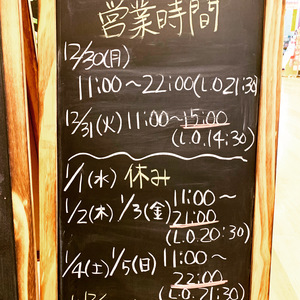 営業時間
12/30(月)
11:00～22:00(L.O.21:30)
12/31(火)11:00～15:00
(L.O.14:30)
1/1(水) 休み
1/2(木) 1/3(金) 11:00～
21:00
(L.O.20:30)
1/4(土) 1/5(日) 11:00～
22:00
(L.O.21:30)